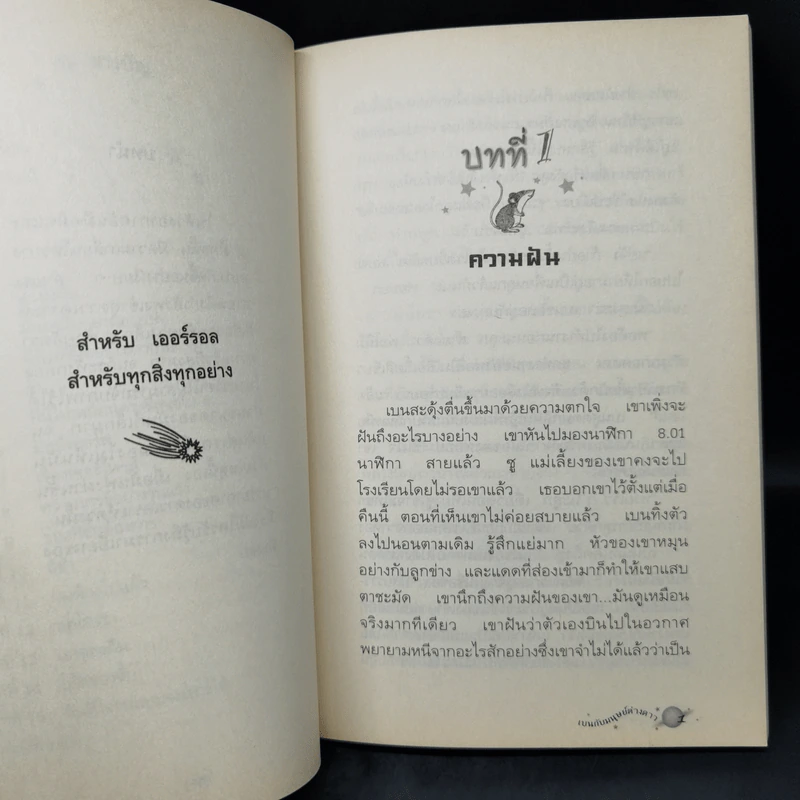 สำหรับ เออร์รอล
สำหรับทุกสิ่งทุกอย่าง
บทที่ 1
ความฝัน
เบนสะดุ้งตื่นขึ้นมาด้วยความตกใจ เขาเพิ่งจะ
ฝันถึงอะไรบางอย่าง เขาหันไปมองนาฬิกา 8.01
นาฬิกา สายแล้ว ซู แม่เลี้ยงของเขาคงจะไป
โรงเรียนโดยไม่รอเขาแล้ว เธอบอกเขาไว้ตั้งแต่เมื่อ
คืนนี้ ตอนที่เห็นเขาไม่ค่อยสบายแล้ว เบนทิ้งตัว
ลงไปนอนตามเดิม รู้สึกแย่มาก หัวของเขาหมุน
อย่างกับลูกข่าง และแดดที่ส่องเข้ามาก็ทำให้เขาแสบ
ตาชะมัด เขานึกถึงความฝันของเขา...มันดูเหมือน
จริงมากทีเดียว เขาฝันว่าตัวเองบินไปในอวกาศ
พยายามหนีจากอะไรสักอย่างซึ่งเขาจำไม่ได้แล้วว่าเป็น
เบนกับมนุษย์ต่างดาว 1